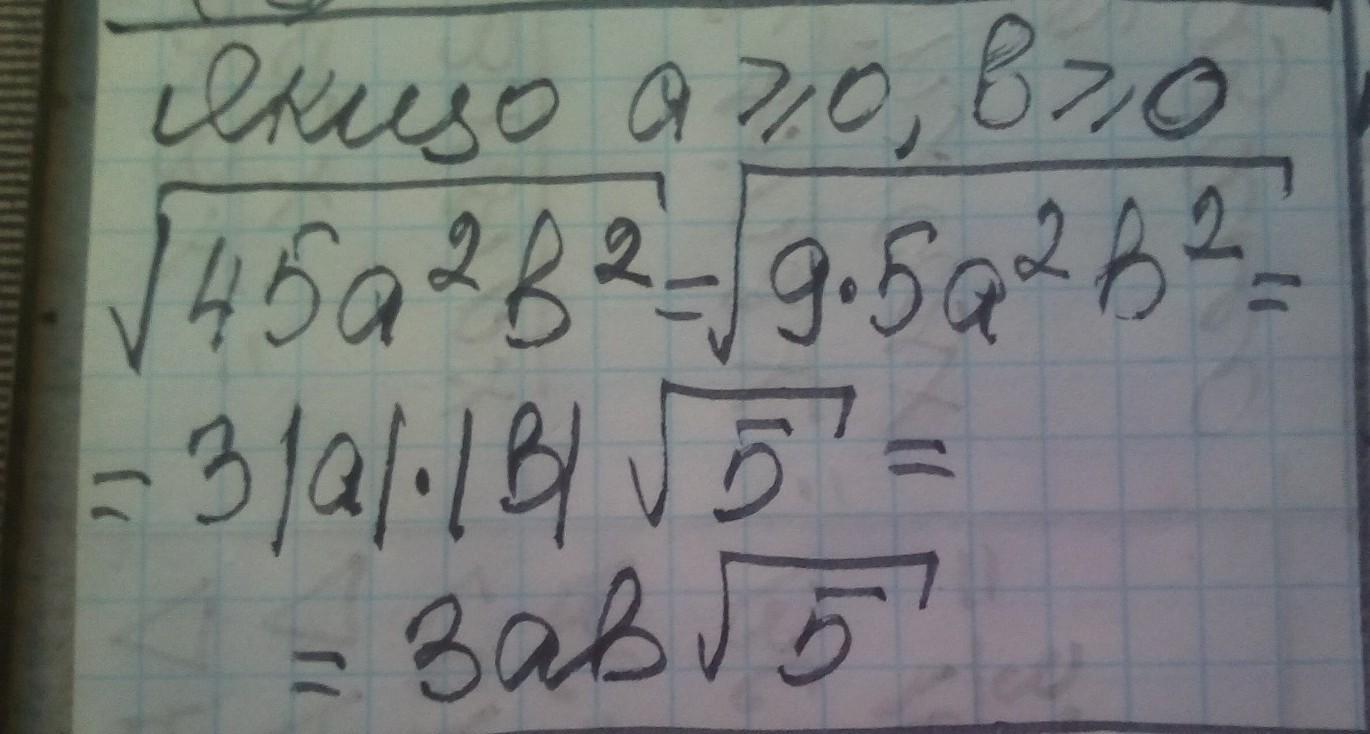 якщо a ⩾ 0, b ⩾ 0
√45a²b² = √9·5a²b² =
= 3|a|·|b| √5 =
= 3ab√5